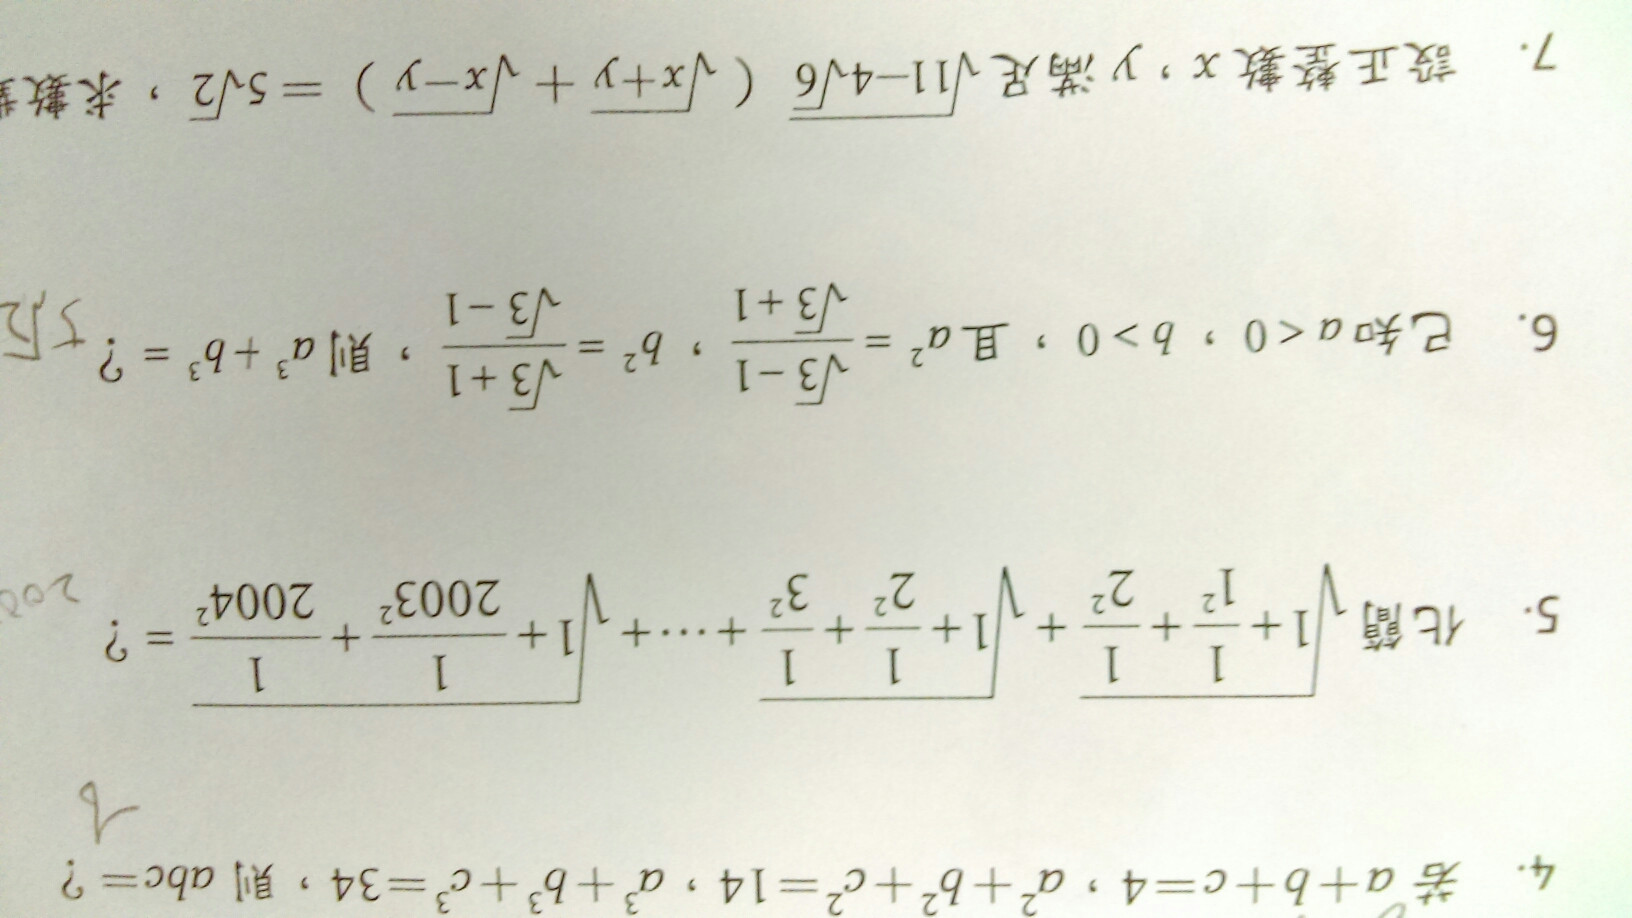 4. 若 a+b+c=4，a²+b²+c²=14，a³+b³+c³=34，則 abc=?
5. 化簡 √(1+1/1²+1/2²) + √(1+1/2²+1/3²) +…+ √(1+1/2003²+1/2004²) = ?
6. 已知 a<0，b>0，且 a² = (√3−1)/(√3+1)，b² = (√3+1)/(√3−1)，則 a³+b³ = ? 5√2
7. 設正整數 x，y 滿足 √(11−4√6) (√(x+y) + √(x−y)) = 5√2，求數